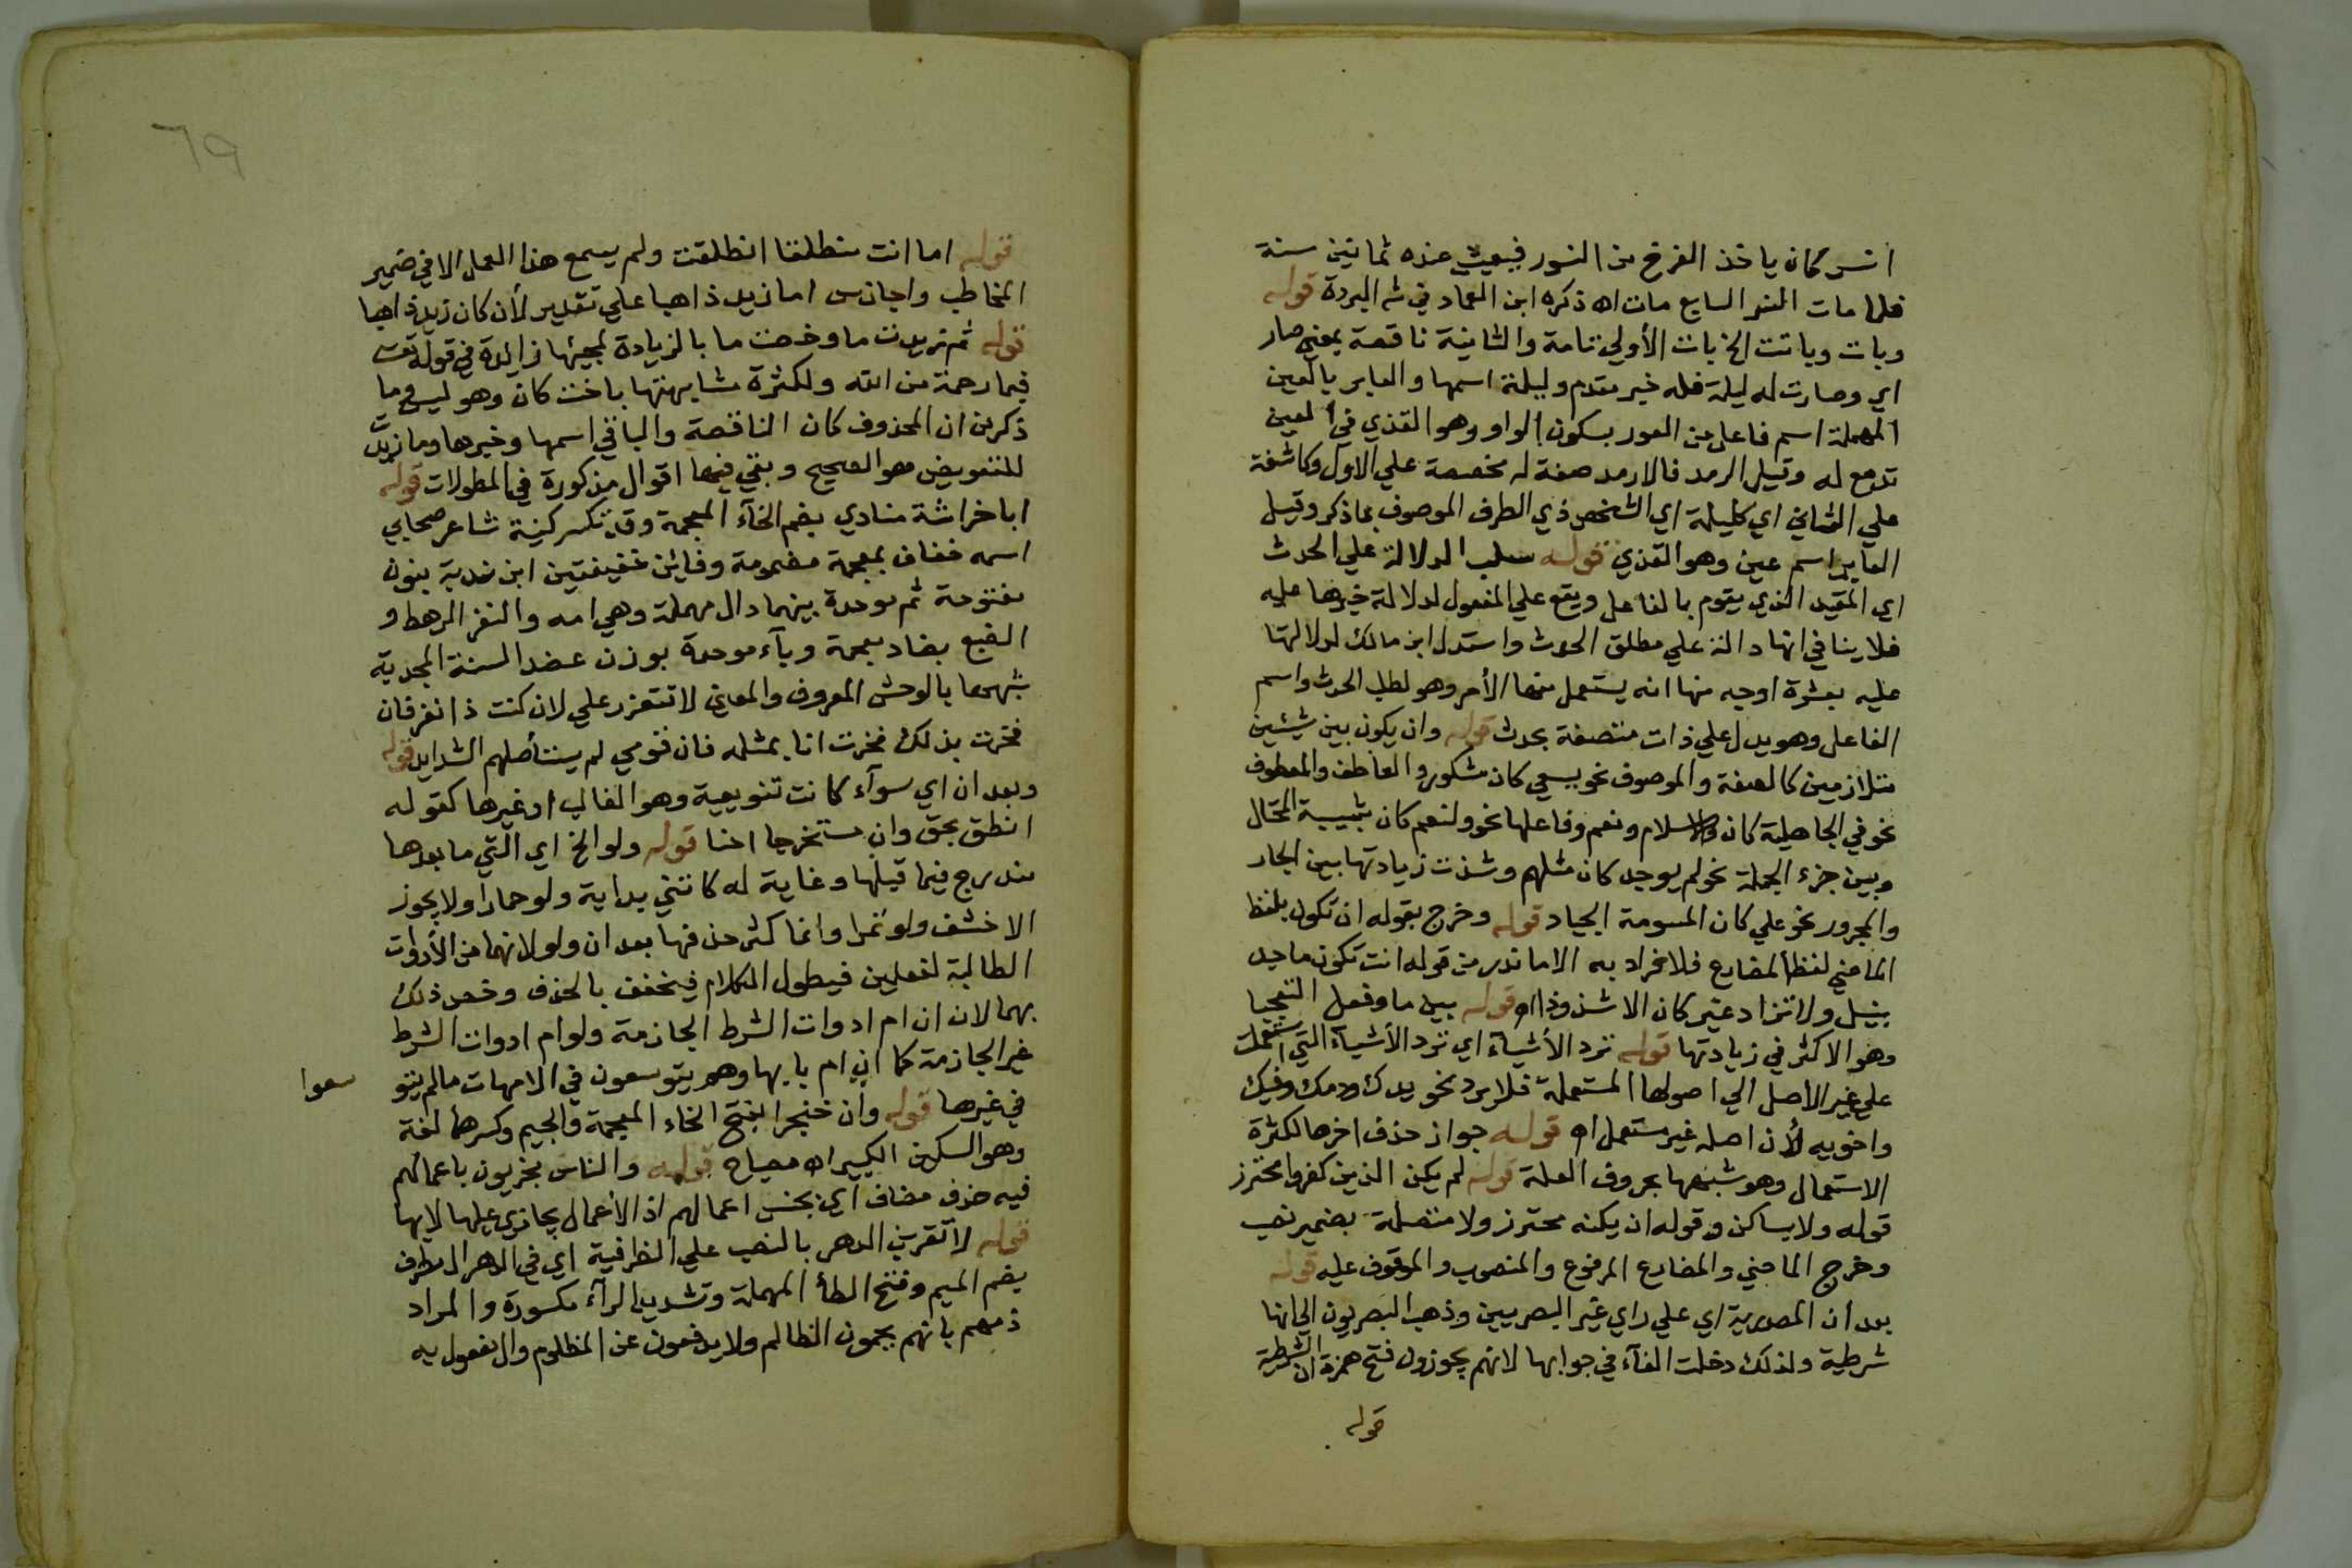 انسر كان ياخذ الفرخ من النسور فيعيش عنده ثمانين سنة
فلما مات النسر السابع مات اه ذكره ابن العماد في شه البردة قوله
وبات وباتت الخ بات الأولي تامة والثانية ناقصة بمعني صار
اي وصارت له ليلة فله خبر مقدم وليلة اسمها والعاير بالعين
المهملة اسم فاعل من العور بسكون الواو وهو القذي في العين
تدمع له وقيل الرمد فالارمد صفة له مخصصة علي الاول وكاشفة
علي الثاني اي كليلة اي الشخص ذي الطرف الموصوف بما ذكر وقيل
العاير اسم عين وهو القذي قوله سلب الدلالة علي الحدث
اي المقيد الذي يقوم بالفاعل ويقع علي المفعول لدلالة خبرها عليه
فلا ينافي انها دالة علي مطلق الحدث واستدل ابن مالك لدلالتها
عليه بعشرة اوجه منها انه يستعمل منها الأمر وهو لطلب الحدث واسم
الفاعل وهو يدل علي ذات متصفة بحدث قوله وان يكون بين شيئين
متلازمين كالصفة والموصوف نحو بسعي كان مشكور والعاطف والمعطوف
نحو في الجاهلية كان والاسلام ونعم وفاعلها نحو ولنعم كان شبيبة المحتال
وبين جزء الجملة نحو لم يوجد كان مثلهم وشذت زيادتها بين الجار
والمجرور نحو علي كان المسومة الجياد قوله وخرج بقوله ان تكون بلفظ
الماضي لفظ المضارع فلا تزاد به الا ما ندر من قوله انت تكون ماجد
نبيل ولا تزاد غير كان الا شذوذا اه قوله بين ما وفعل التعجب
وهو الاكثر في زيادتها قوله ترد الأشياء اي ترد الأشياء التي استعملت
علي غير الأصل الي اصولها المستعملة فلا يرد نحو يدك ودمك وفيك
واخويه لأن اصله غير مستعمل اه قوله جواز حذف اخرها لكثرة
الاستعمال وهو شبهها بحروف العلة قوله لم يكن الذين كفروا محترز
قوله ولا بساكن وقوله ان يكنه محترز ولا متصلة بضمير نصب
وخرج الماضي والمضارع المرفوع والمنصوب والموقوف عليه قوله
بعد أن المصدرية اي علي راي غير البصريين وذهب البصريون الي انها
شرطية ولذلك دخلت الفآء في جوابها لانهم يجوزون فتح همزة ان الشرطية
قوله
٦٩
قوله اما انت منطلقا انطلقت ولم يسمع هذا العمل الا في ضمير
المخاطب واجاز س اما زيد ذاهبا علي تقدير لأن كان زيد ذاهبا
قوله ثم زيدت ما وخصت ما بالزيادة لمجيئها زايدة في قوله تعت
فبما رحمة من الله ولكثرة مشابهتها باخت كان وهو ليس وما
ذكر من ان المحذوف كان الناقصة والباقي اسمها وخبرها وما زيدت
للتعويض هو الصحيح وبقي فيها اقوال مذكورة في المطولات قوله
ابا خراشة منادي بضم الخآء المعجمة وقد تكسر كنية شاعر صحابي
اسمه خفاف بمعجمة مضمومة وفائين خفيفتين ابن ندبة بنون
مفتوحة ثم موحدة بينهما دال مهملة وهي امه والنفر الرهط و
الضبع بضاد معجمة وبآء موحدة بوزن عضد السنة المجدبة
شبهها بالوحش المعروف والمعني لا تتعزز علي لان كنت ذا نفر فان
فخرت بذلك فخرت انا بمثله فان قومي لم يستأصلهم الشدايد قوله
وبعد ان اي سوآء كانت تنويعية وهو الغالب او غيرها كقوله
انطق بحق وان مستخرجا احنا قوله ولو الخ اي التي ما بعدها
مندرج فيما قبلها وغاية له كائتني بداية ولو حمارا ولا يجوز
الا خشف ولو تمرا وانما كثر حذفها بعد ان ولو لانهما من الأدوات
الطالبة لفعلين فيطول الكلام فيخفف بالحذف وخص ذلك
بهما لان ان ام ادوات الشرط الجازمة ولو ام ادوات الشرط
غير الجازمة كما ان ام بابها وهم يتوسعون في الامهات ما لم يتو
سعوا
في غيرها قوله وان خنجرا بفتح الخاء المعجمة والجيم وكسرهما لغة
وهو السكين الكبير اه مصباح قوله والناس مجزيون باعمالهم
فيه حذف مضاف اي بجنس اعمالهم اذ الأعمال يجازي عليها لا بها
قوله لا تقربن الدهر بالنصب علي الظرفية اي في الدهر ال مطرف
بضم الميم وفتح الطأ المهملة وتشديد الرآء مكسورة والمراد
ذمهم بانهم يحمون الظالم ولا يدفعون عن المظلوم والمفعول به